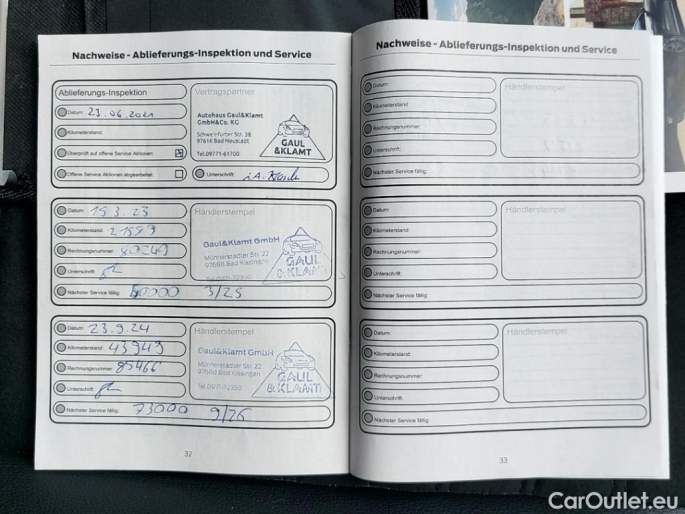 Nachweise - Ablieferungs-Inspektion und Service
Ablieferungs-Inspektion
Vertragspartner
Datum: 23.06.2021
Kilometerstand:
Überprüft auf offene Service Aktionen
Offene Service Aktionen abgearbeitet
Autohaus Gaul&Klamt
GmbH&Co. KG
Schweinfurter Str. 38
97616 Bad Neustadt
Tel.09771-61700
GAUL
&KLAMT
Unterschrift: i.A.
Datum: 15.3.23
Kilometerstand: 21899
Rechnungsnummer: 80249
Unterschrift:
Nächster Service fällig: 50000 3/25
Händlerstempel
Gaul&Klamt GmbH
Münnerstädter Str. 22
97688 Bad Kissingen
GAUL
&KLAMT
Datum: 23.9.24
Kilometerstand: 43949
Rechnungsnummer: 85466
Unterschrift:
Nächster Service fällig: 73000 9/26
Händlerstempel
Gaul&Klamt GmbH
Münnerstädter Str. 22
97688 Bad Kissingen
GAUL
&KLAMT
32
Nachweise - Ablieferungs-Inspektion und Service
Datum:
Kilometerstand:
Rechnungsnummer:
Unterschrift:
Nächster Service fällig:
Händlerstempel
Datum:
Kilometerstand:
Rechnungsnummer:
Unterschrift:
Nächster Service fällig:
Händlerstempel
Datum:
Kilometerstand:
Rechnungsnummer:
Unterschrift:
Nächster Service fällig:
Händlerstempel
33
CarOutlet.eu